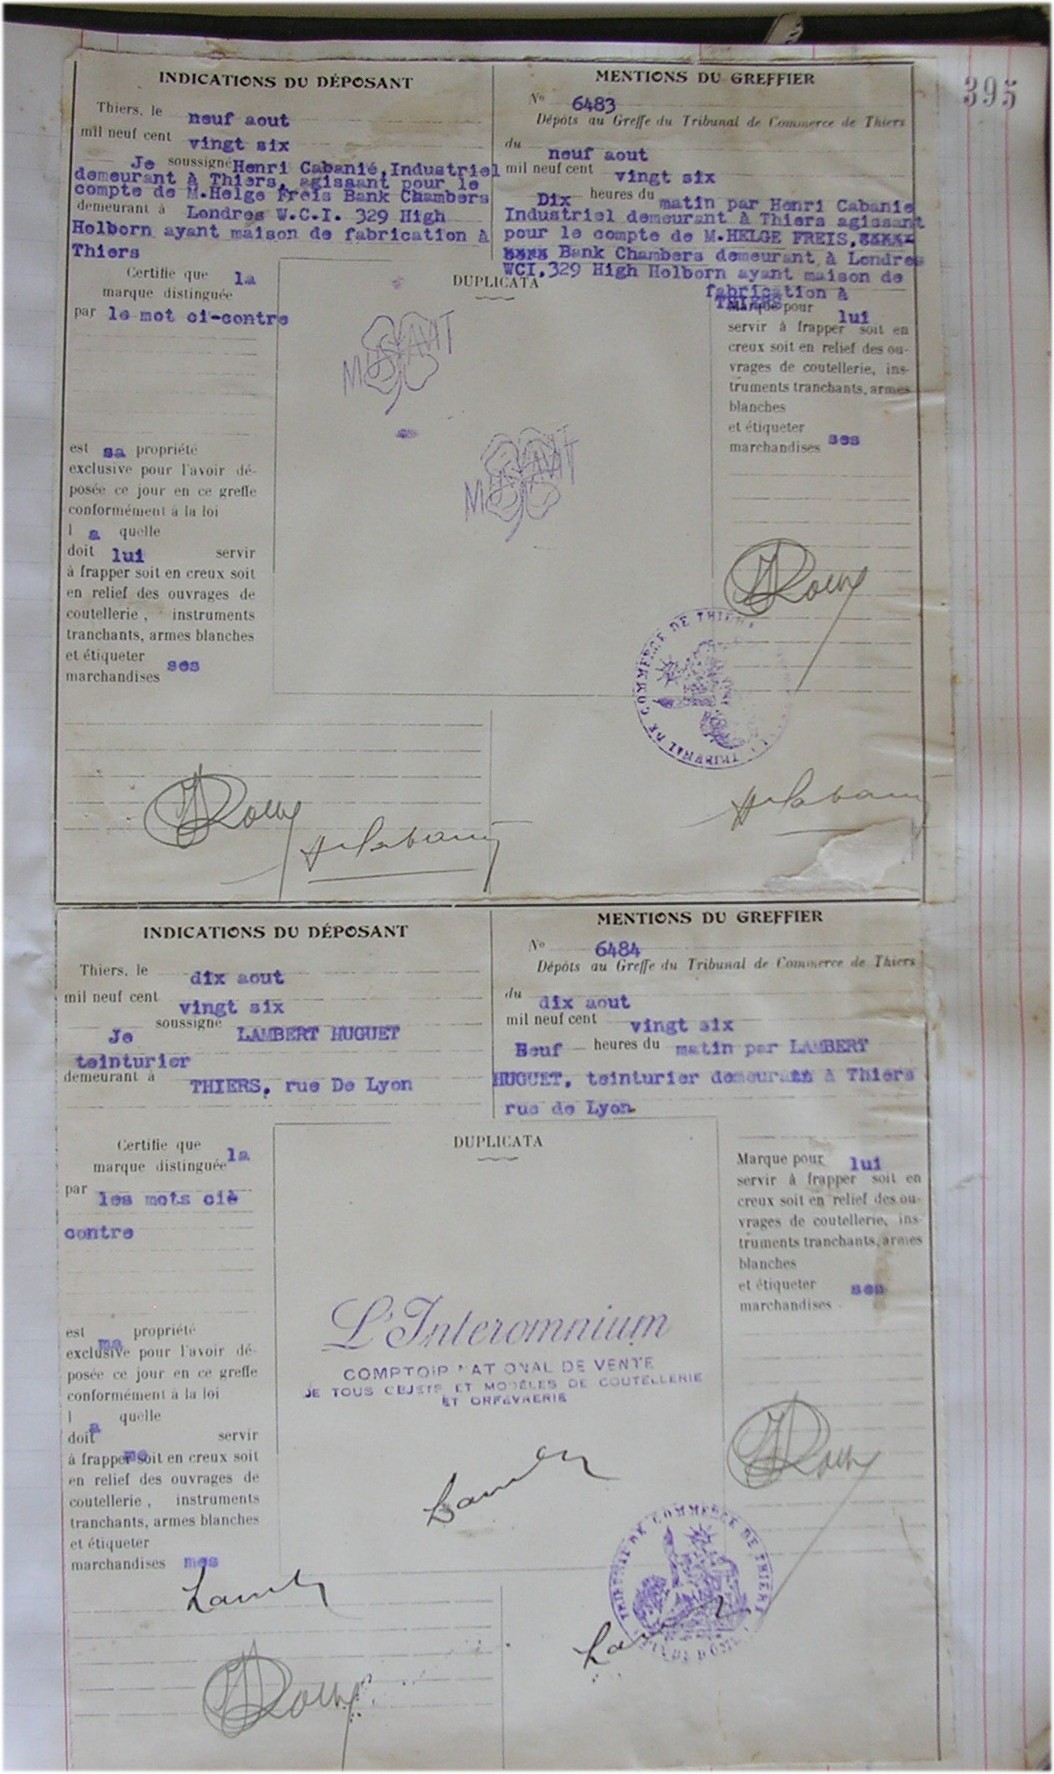 395
INDICATIONS DU DÉPOSANT
Thiers, le neuf aout
mil neuf cent vingt six
Je soussigné Henri Cabanié, Industriel
demeurant à Thiers, agissant pour le
compte de M.Helge Freis Bank Chambers
demeurant à Londres W.C.I. 329 High
Holborn ayant maison de fabrication à
Thiers
Certifie que la
marque distinguée
par le mot ci-contre
est sa propriété
exclusive pour l'avoir dé-
posée ce jour en ce greffe
conformément à la loi
l a quelle
doit lui servir
à frapper soit en creux soit
en relief des ouvrages de
coutellerie, instruments
tranchants, armes blanches
et étiqueter
marchandises ses
MENTIONS DU GREFFIER
No 6483
Dépôts au Greffe du Tribunal de Commerce de Thiers
du neuf aout
mil neuf cent vingt six
Dix heures du matin par Henri Cabanie
Industriel demeurant à Thiers agissant
pour le compte de M.HELGE FREIS,
Bank Chambers demeurant à Londres
WCI,329 High Holborn ayant maison de
fabrication à
THIERS
DUPLICATA
Marque pour lui
servir à frapper soit en
creux soit en relief des ou-
vrages de coutellerie, ins-
truments tranchants, armes
blanches
et étiqueter
marchandises ses
TRIBUNAL DE COMMERCE DE THIERS
INDICATIONS DU DÉPOSANT
Thiers, le dix aout
mil neuf cent vingt six
Je soussigné LAMBERT HUGUET
teinturier
demeurant à THIERS, rue De Lyon
Certifie que la
marque distinguée
par les mots ciè
contre
est ma propriété
exclusive pour l'avoir dé-
posée ce jour en ce greffe
conformément à la loi
l a quelle
doit me servir
à frapper soit en creux soit
en relief des ouvrages de
coutellerie, instruments
tranchants, armes blanches
et étiqueter
marchandises mes
MENTIONS DU GREFFIER
No 6484
Dépôts au Greffe du Tribunal de Commerce de Thiers
du dix aout
mil neuf cent vingt six
Neuf heures du matin par LAMBERT
HUGUET, teinturier demeurant à Thiers
rue de Lyon
DUPLICATA
L'Interomnium
COMPTOIR NATIONAL DE VENTE
DE TOUS OBJETS ET MODÈLES DE COUTELLERIE
ET ORFÈVRERIE
Marque pour lui
servir à frapper soit en
creux soit en relief des ou-
vrages de coutellerie, ins-
truments tranchants, armes
blanches
et étiqueter
marchandises ses
TRIBUNAL DE COMMERCE DE THIERS